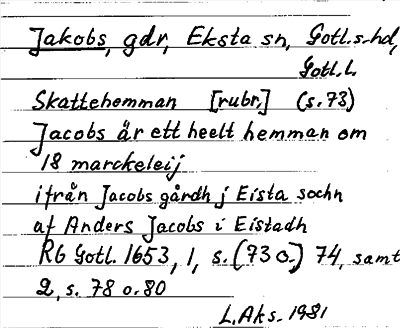 Jakobs, gdr, Eksta sn, Gotl.s.hd,
Gotl.l.
Skattehemman [rubr.] (s.73)
Jacobs är ett heelt hemman om
18 marckeleij
ifrån Jacobs gårdh j Eista sochn
af Anders Jacobs i Eistadh
RG Gotl. 1653, 1, s. (73 o.) 74, samt
2, s. 78 o. 80
L. Aks. 1981